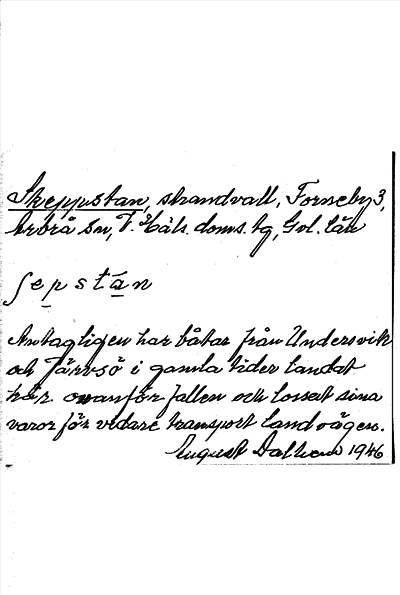 Skeppstan, strandvall, Forneby 3,
Arbrå sn, V. Häls. doms. bg, Gvl. län
ʃepstån
Antagligen har båtar från Undersvik
och Järvsö i gamla tider landat
här ovanför fallen och lossat sina
varor för vidare transport landvägen.
August Dalhem 1946